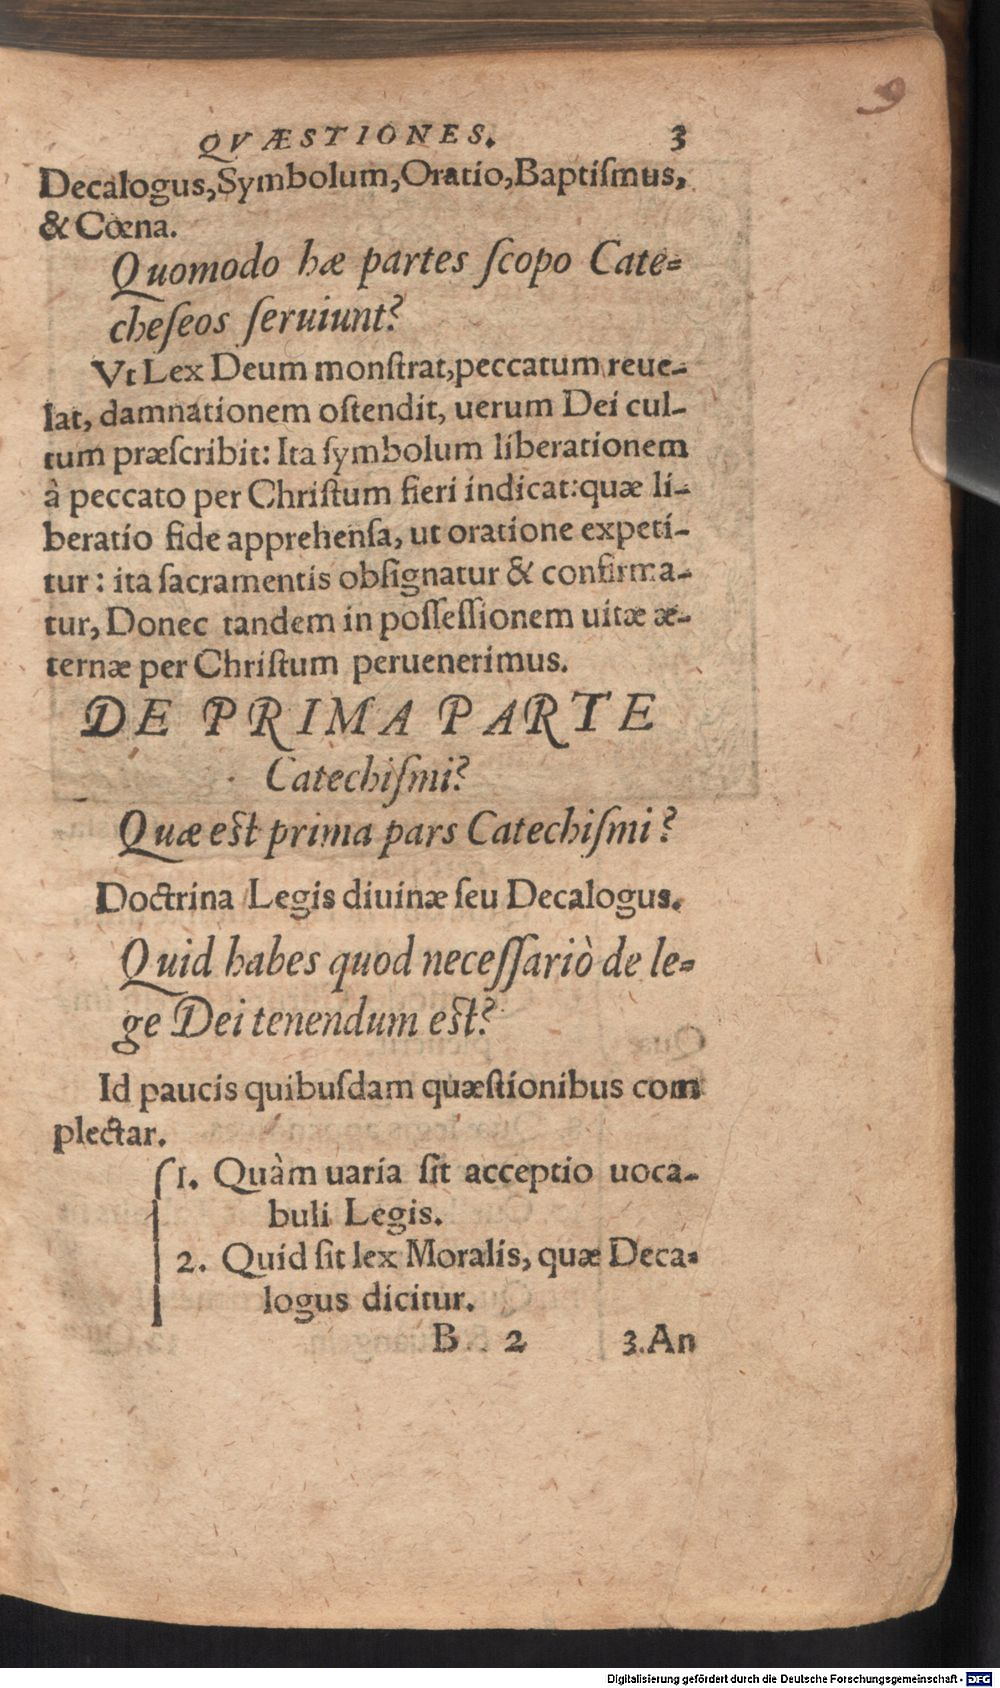 9
QVÆSTIONES. 3
Decalogus, Symbolum, Oratio, Baptiſmus,
& Cœna.
Quomodo hæ partes ſcopo Cate-
cheſeos ſeruiunt?
Vt Lex Deum monſtrat, peccatum reue-
lat, damnationem oſtendit, uerum Dei cul-
tum præſcribit: Ita ſymbolum liberationem
à peccato per Chriſtum fieri indicat: quæ li-
beratio fide apprehenſa, ut oratione expeti-
tur: ita ſacramentis obſignatur & confirma-
tur, Donec tandem in poſſeſsionem uitæ æ-
ternæ per Chriſtum peruenerimus.
DE PRIMA PARTE
Catechiſmi?
Quæ est prima pars Catechiſmi?
Doctrina Legis diuinæ ſeu Decalogus.
Quid habes quod neceſſariò de le-
ge Dei tenendum est?
Id paucis quibuſdam quæſtionibus com
plectar.
1. Quàm uaria ſit acceptio uoca-
buli Legis.
2. Quid ſit lex Moralis, quæ Deca-
logus dicitur.
B 2 3. An
Digitalisierung gefördert durch die Deutsche Forschungsgemeinschaft - DFG